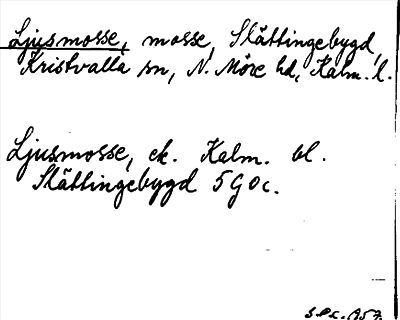 Ljusmosse, mosse, Slättingebygd,
Kristvalla sn, N. Möre hd, Kalm. l.
Ljusmosse, ek. Kalm. bl.
Slättingebygd 5G0c.